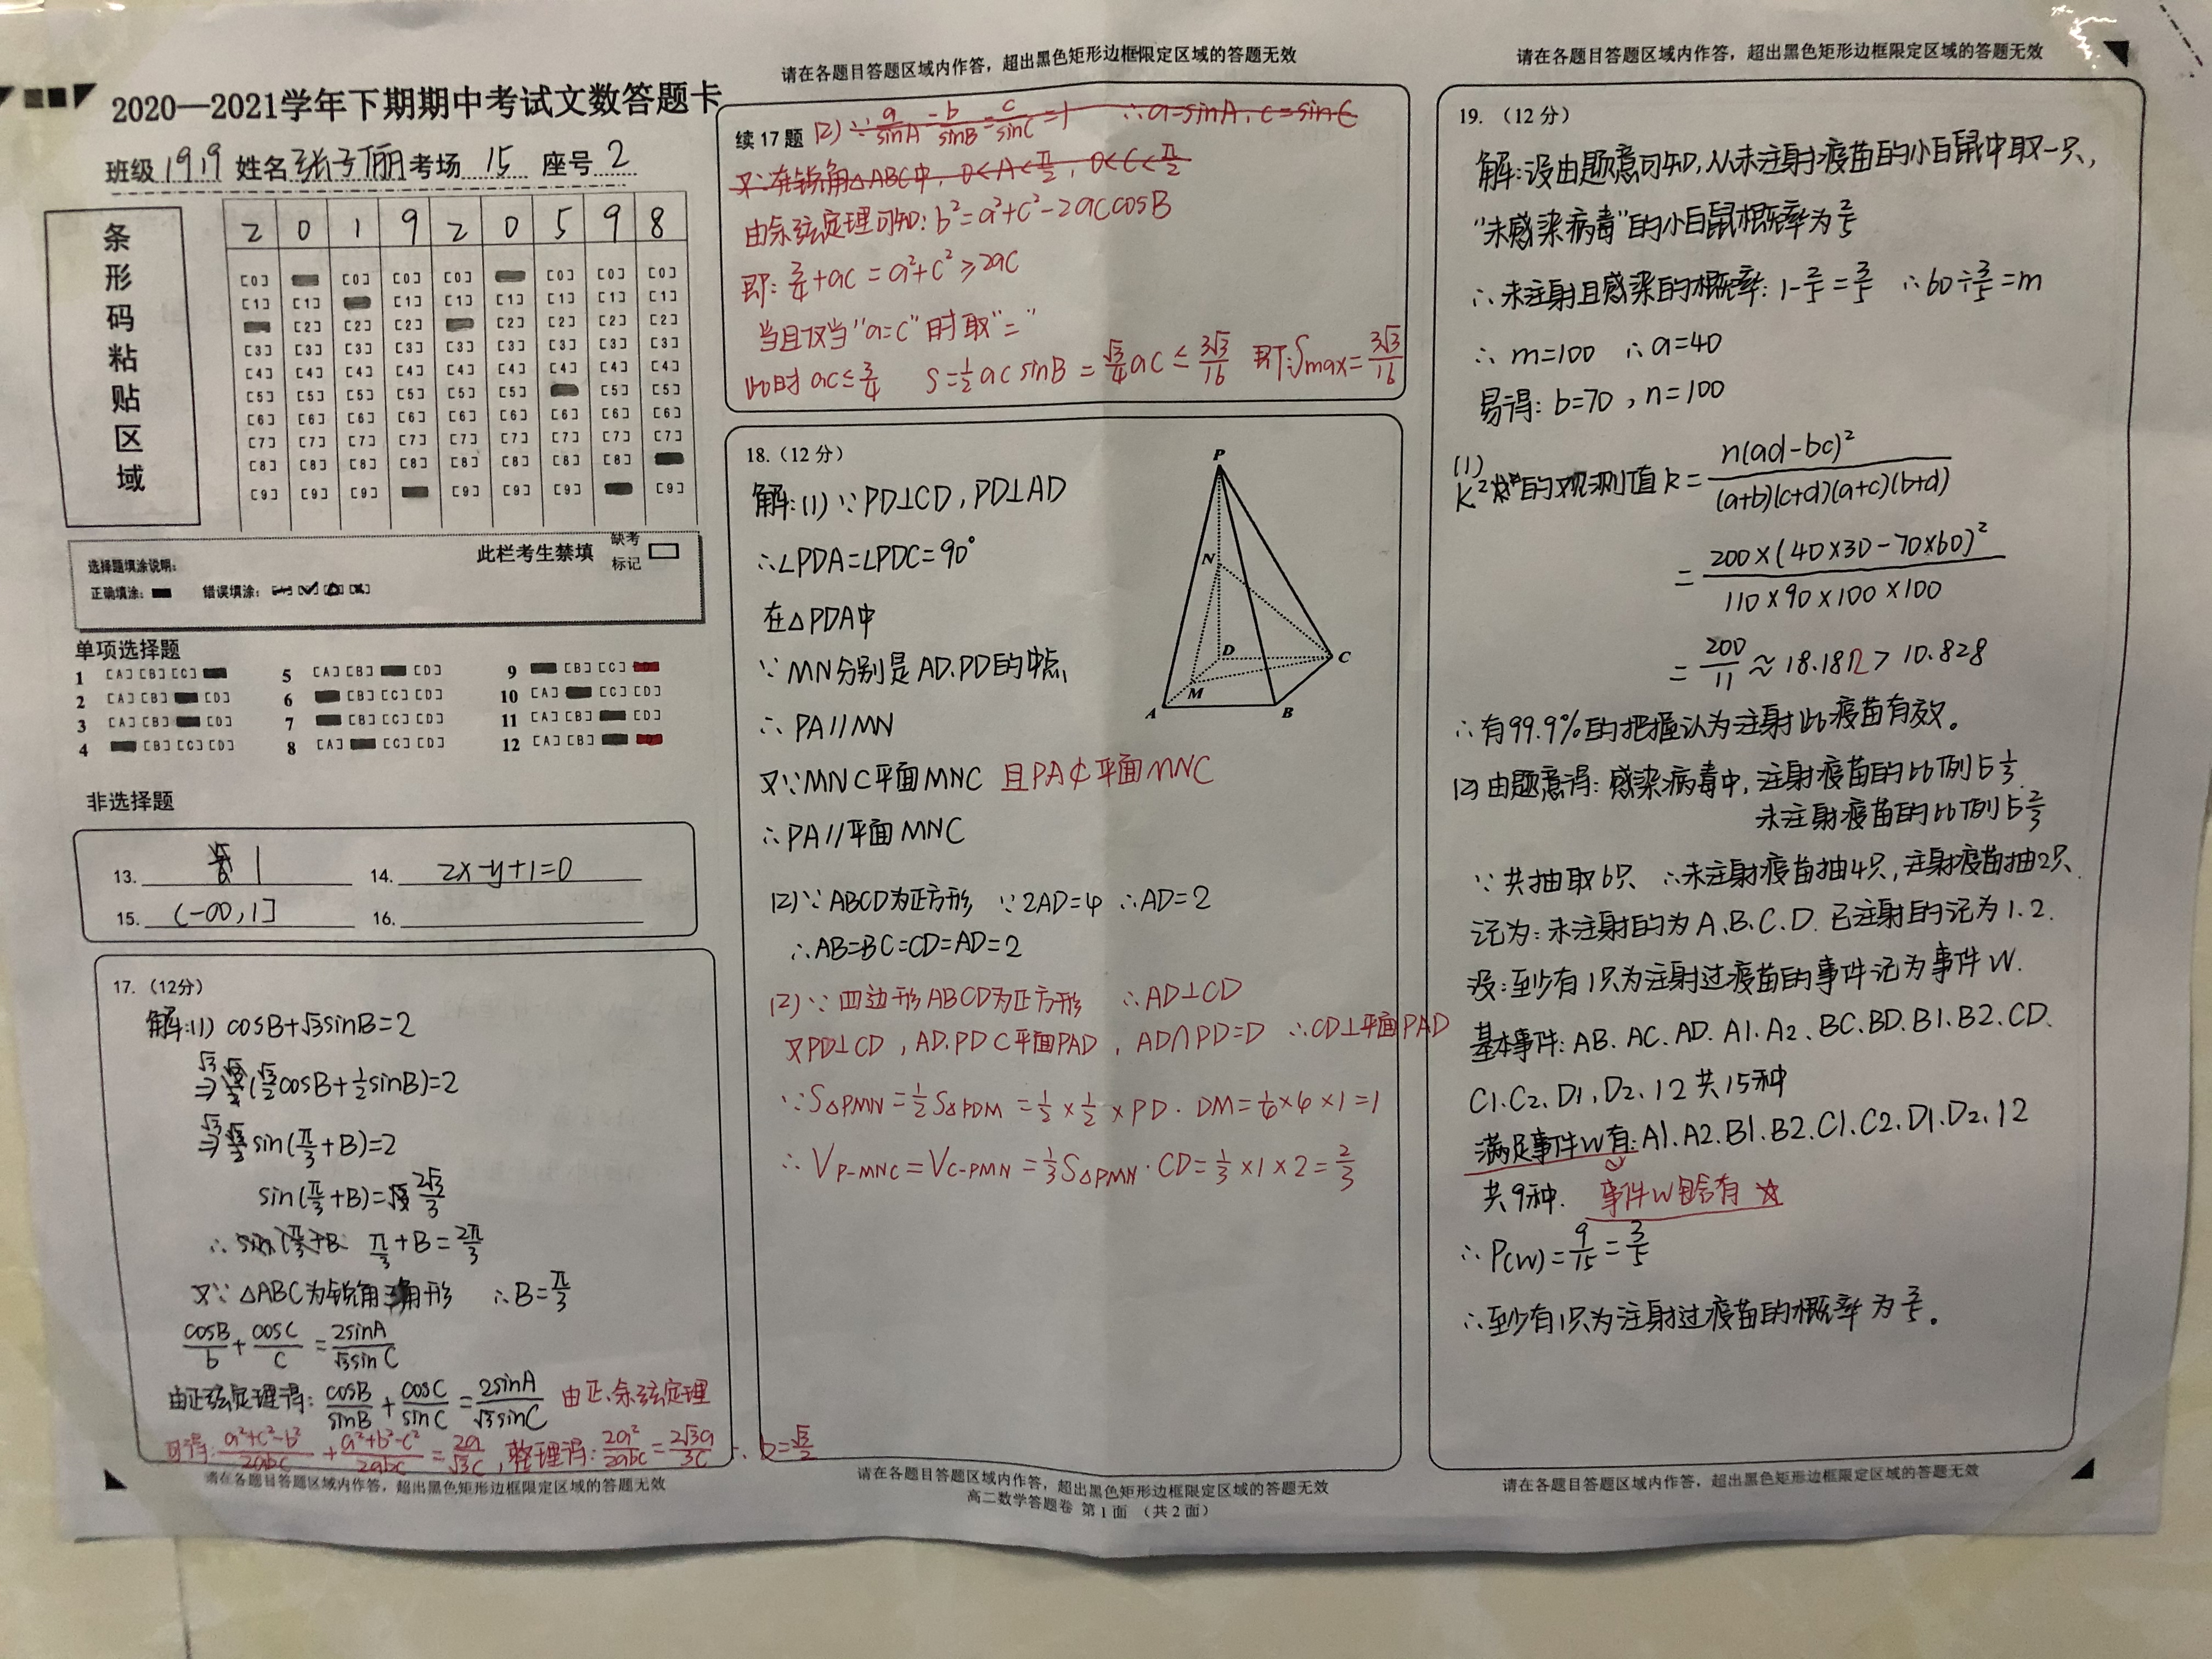 2020—2021学年下期期中考试文数答题卡
班级 1919 姓名 张子俪 考场 15 座号 2
条形码粘贴区域
2 0 1 9 2 0 5 9 8
[0] [0] [0] [0] [0] [0] [0]
[1] [1] [1] [1] [1] [1] [1] [1]
[2] [2] [2] [2] [2] [2] [2]
[3] [3] [3] [3] [3] [3] [3] [3] [3]
[4] [4] [4] [4] [4] [4] [4] [4] [4]
[5] [5] [5] [5] [5] [5] [5] [5]
[6] [6] [6] [6] [6] [6] [6] [6] [6]
[7] [7] [7] [7] [7] [7] [7] [7] [7]
[8] [8] [8] [8] [8] [8] [8] [8]
[9] [9] [9] [9] [9] [9] [9]
此栏考生禁填 缺考标记
选择题填涂说明:
正确填涂: 错误填涂:
单项选择题
1 [A] [B] [C] 5 [A] [B] [D] 9 [B] [C]
2 [A] [B] [D] 6 [B] [C] [D] 10 [A] [C] [D]
3 [A] [B] [D] 7 [B] [C] [D] 11 [A] [B] [D]
4 [B] [C] [D] 8 [A] [C] [D] 12 [A] [B]
非选择题
13. 1 14. 2x-y+1=0
15. (-∞,1] 16.
17. (12分)
解:(1) cosB+√3sinB=2
⇒ (√3/2cosB+1/2sinB)=2
⇒ sin(π/3+B)=2
sin(π/3+B)= 2√3/3
∴ π/3+B=2π/3
又∵ △ABC为锐角三角形 ∴B=π/3
cosB/b+cosC/c=2sinA/√3sinC
由正弦定理得: cosB/sinB+cosC/sinC=2sinA/√3sinC 由正、余弦定理
可得: a²+c²-b²/2abc+a²+b²-c²/2abc=2a/√3c, 整理得: 2a²/2abc=2√3a/3c ∴ b=√3/2
请在各题目答题区域内作答，超出黑色矩形边框限定区域的答题无效
请在各题目答题区域内作答，超出黑色矩形边框限定区域的答题无效
续17题 (2) ∵a/sinA=b/sinB=c/sinC=1 ∴a=sinA, c=sinC
又∵在锐角△ABC中, 0<A<π/2, 0<C<π/2
由余弦定理可知: b²=a²+c²-2accosB
即: 3/4+ac=a²+c²≥2ac
当且仅当"a=c"时取"="
此时 ac≤3/4 S=1/2acsinB=√3/4ac≤3√3/16 即:Smax=3√3/16
18. (12分)
解:(1)∵PD⊥CD,PD⊥AD
∴∠PDA=∠PDC=90°
在△PDA中
∵MN分别是AD.PD的中点
∴PA//MN
又∵MN⊂平面MNC 且PA⊄平面MNC
∴PA//平面MNC
P
N
D
C
M
A
B
(2)∵ABCD为正方形 ∵2AD=4 ∴AD=2
∴AB=BC=CD=AD=2
(2)∵四边形ABCD为正方形 ∴AD⊥CD
又PD⊥CD, AD.PD⊂平面PAD, AD∩PD=D ∴CD⊥平面PAD
∵S△PMN=1/2S△PDM=1/2×1/2×PD·DM=1/4×4×1=1
∴VP-MNC=VC-PMN=1/3S△PMN·CD=1/3×1×2=2/3
请在各题目答题区域内作答，超出黑色矩形边框限定区域的答题无效
高二数学答题卷 第1面 (共2面)
请在各题目答题区域内作答，超出黑色矩形边框限定区域的答题无效
19. (12分)
解:设由题意可知,从未注射疫苗的小白鼠中取一只,
"未感染病毒"的小白鼠概率为2/5
∴未注射且感染的概率: 1-2/5=3/5 ∴60÷3/5=m
∴m=100 ∴a=40
易得: b=70, n=100
(1)
K²的观测值k=n(ad-bc)²/(a+b)(c+d)(a+c)(b+d)
=200×(40×30-70×60)²/110×90×100×100
=200/11≈18.182>10.828
∴有99.9%的把握认为注射此疫苗有效。
(2)由题意得:感染病毒中,注射疫苗的比例占1/3
未注射疫苗的比例占2/3
∵共抽取6只 ∴未注射疫苗抽4只,注射疫苗抽2只.
记为:未注射的为A.B.C.D.已注射的记为1.2.
设:至少有1只为注射过疫苗的事件记为事件W.
基本事件: AB. AC. AD. A1. A2. BC. BD. B1. B2. CD.
C1. C2. D1. D2. 12共15种
满足事件W有: A1. A2. B1. B2. C1. C2. D1. D2. 12
共9种. 事件W包含有 ☆
∴P(W)=9/15=3/5
∴至少有1只为注射过疫苗的概率为3/5.
请在各题目答题区域内作答，超出黑色矩形边框限定区域的答题无效